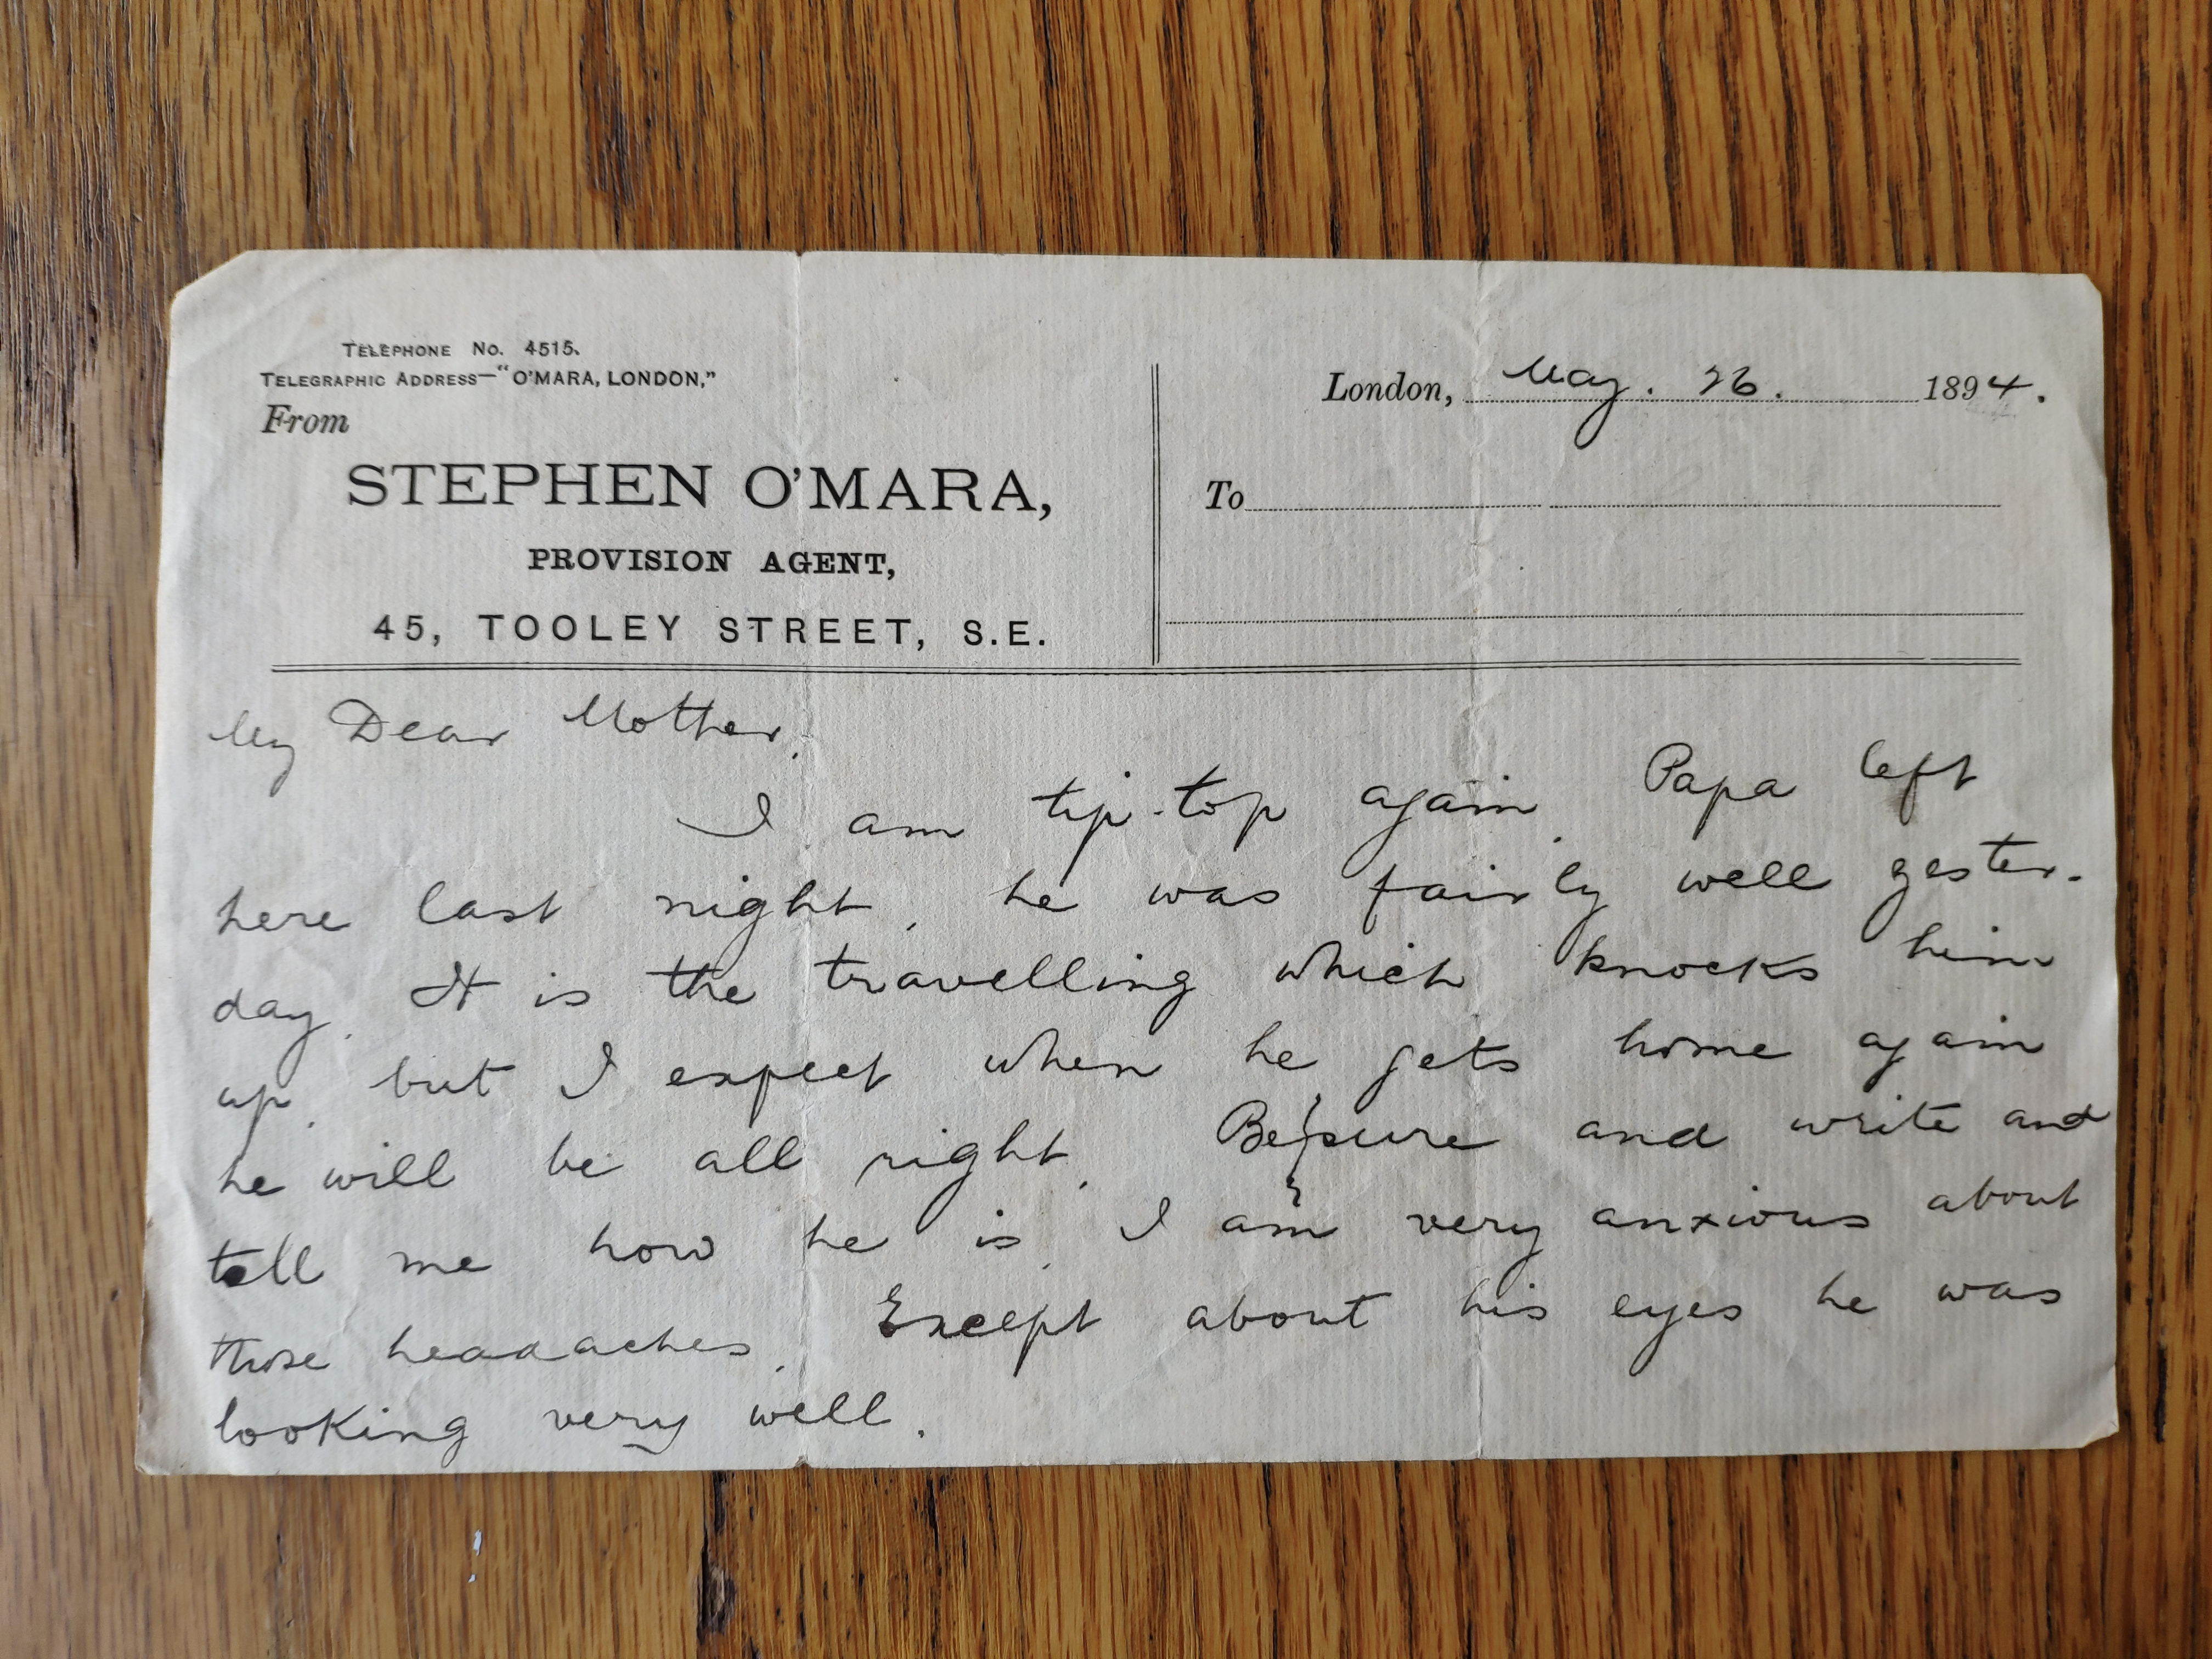 TELEPHONE No. 4515.
TELEGRAPHIC ADDRESS—"O'MARA, LONDON,"
From
STEPHEN O'MARA,
PROVISION AGENT,
45, TOOLEY STREET, S.E.
London, May. 26. 1894.
To
My Dear Mother,
I am tip-top again. Papa left
here last night, he was fairly well yester-
day. It is the travelling which knocks him
up, but I expect when he gets home again
he will be all right. Be sure and write and
tell me how he is. I am very anxious about
those headaches. Except about his eyes he was
looking very well.